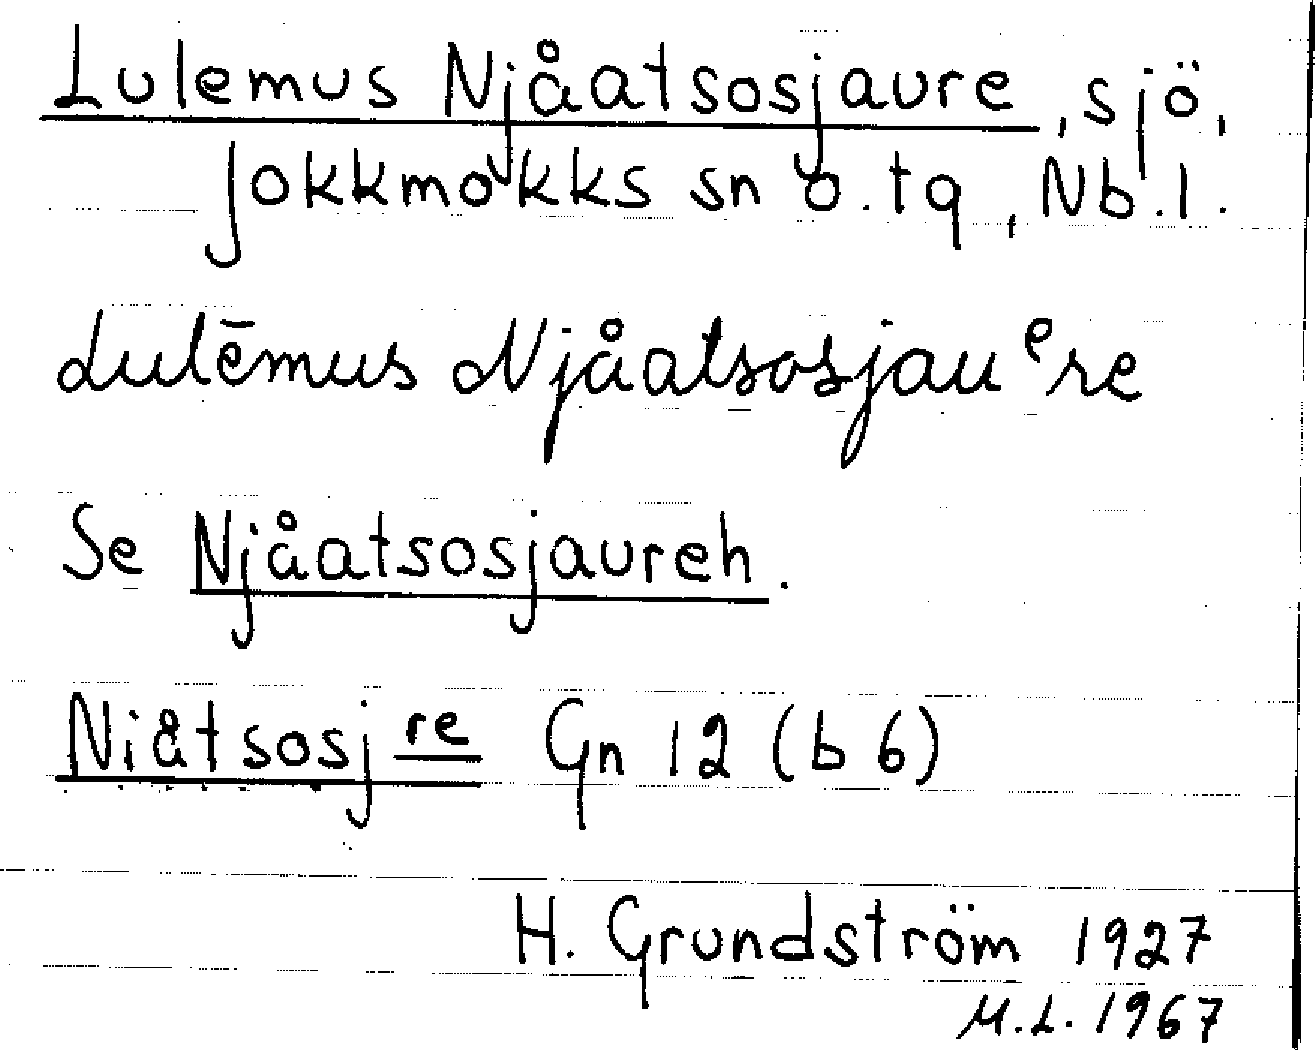 Lulemus Njåatsosjaure, sjö,
Jokkmokks sn o. tg, Nb.l.
Lulēmus Njåatsosjauᵉre
Se Njåatsosjaureh.
Niåtsosjre Gn 12 (b 6)
H. Grundström 1927
M.L. 1967